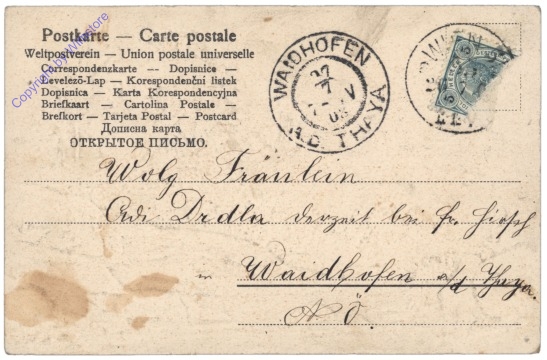 Postkarte — Carte postale
Weltpostverein — Union postale universelle
Correspondenzkarte — Dopisnice —
Levelező-Lap — Korespondenční lístek
Dopisnica — Karta Korespondencyjna
Briefkaart — Cartolina Postale —
Brefkort — Tarjeta Postal — Postcard
Дописна карта
ОТКРЫТОЕ ПИСЬМО.
WAIDHOFEN
A.D. THAYA
WIEN
Wolg Fräulein
Adi Drdla derzeit bei Fr. Hirsch
in Waidhofen a/d Thaya.
N Ö.